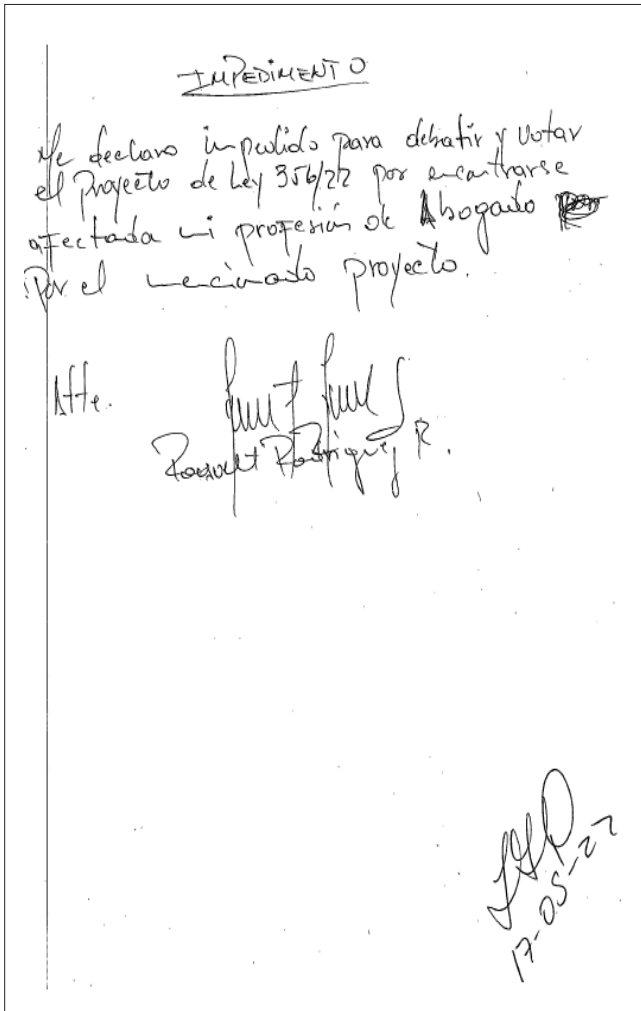 IMPEDIMENTO
Me declaro impedido para debatir y votar
el Proyecto de Ley 356/22 por encontrarse
afectada mi profesión de Abogado
Por el mencionado proyecto.
Atte.
Rodríguez R.
17-05-22